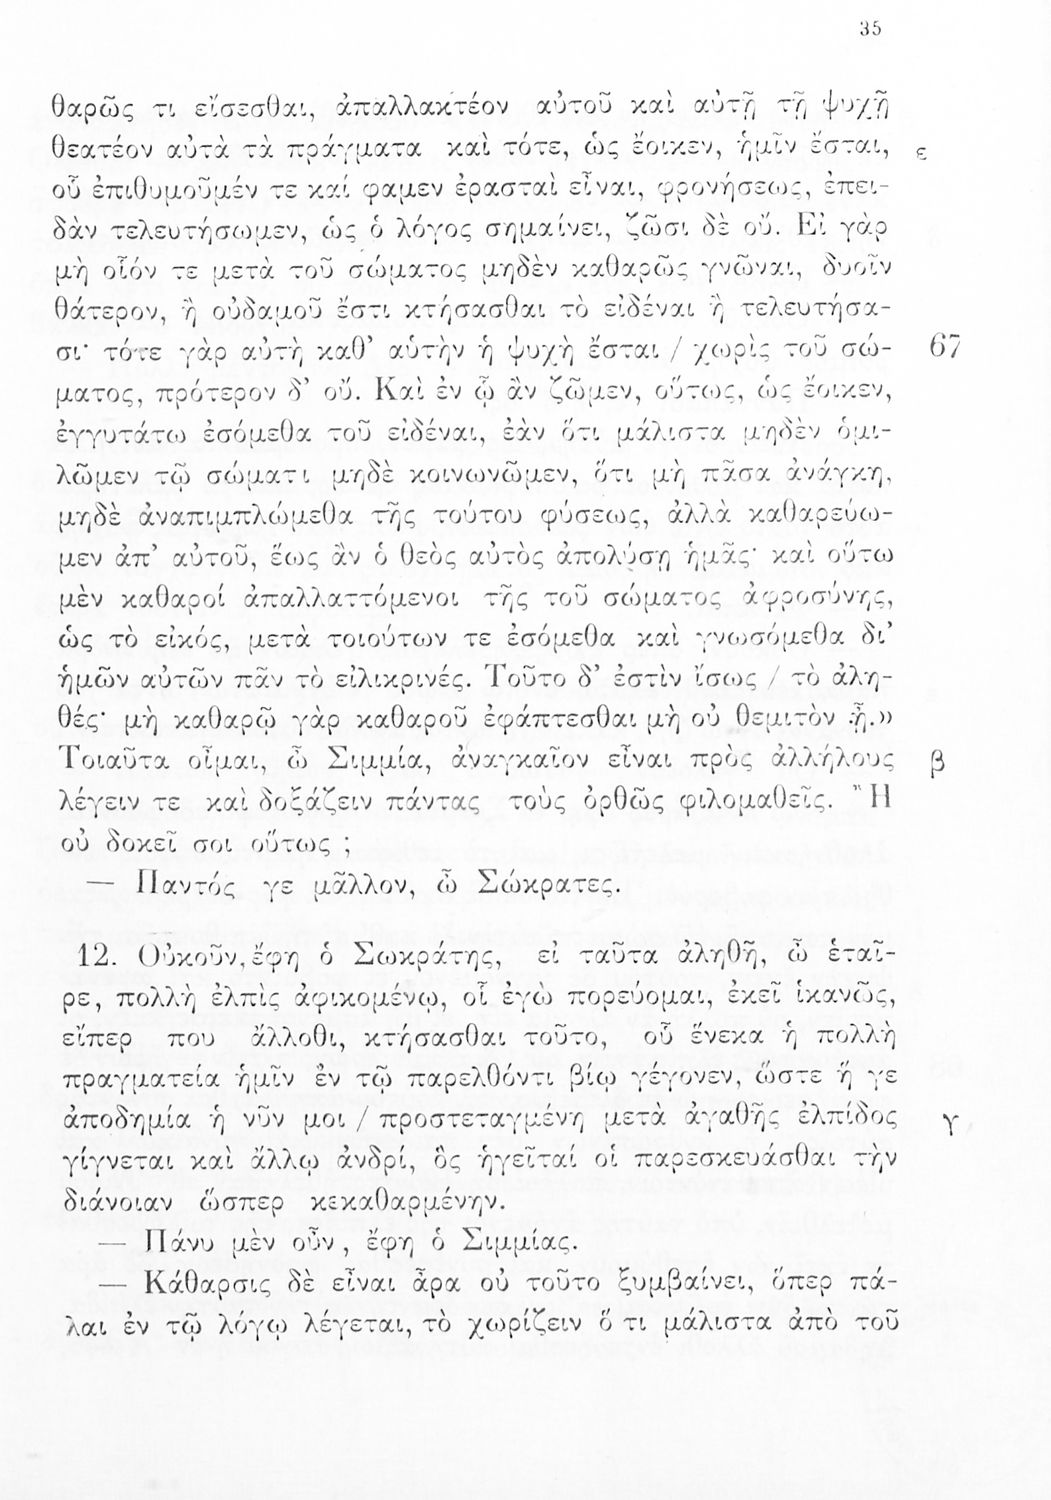 35
θαρῶς τι εἴσεσθαι, ἀπαλλακτέον αὐτοῦ καὶ αὐτῇ τῇ ψυχῇ
θεατέον αὐτὰ τὰ πράγματα καὶ τότε, ὡς ἔοικεν, ἡμῖν ἔσται, ε
οὗ ἐπιθυμοῦμέν τε καί φαμεν ἐρασταὶ εἶναι, φρονήσεως, ἐπει-
δὰν τελευτήσωμεν, ὡς ὁ λόγος σημαίνει, ζῶσι δὲ οὔ. Εἰ γὰρ
μὴ οἷόν τε μετὰ τοῦ σώματος μηδὲν καθαρῶς γνῶναι, δυοῖν
θάτερον, ἢ οὐδαμοῦ ἔστι κτήσασθαι τὸ εἰδέναι ἢ τελευτήσα-
σι· τότε γὰρ αὐτὴ καθ’ αὑτὴν ἡ ψυχὴ ἔσται / χωρὶς τοῦ σώ- 67
ματος, πρότερον δ’ οὔ. Καὶ ἐν ᾧ ἂν ζῶμεν, οὕτως, ὡς ἔοικεν,
ἐγγυτάτω ἐσόμεθα τοῦ εἰδέναι, ἐὰν ὅτι μάλιστα μηδὲν ὁμι-
λῶμεν τῷ σώματι μηδὲ κοινωνῶμεν, ὅτι μὴ πᾶσα ἀνάγκη,
μηδὲ ἀναπιμπλώμεθα τῆς τούτου φύσεως, ἀλλὰ καθαρεύω-
μεν ἀπ’ αὐτοῦ, ἕως ἂν ὁ θεὸς αὐτὸς ἀπολύσῃ ἡμᾶς· καὶ οὕτω
μὲν καθαροί ἀπαλλαττόμενοι τῆς τοῦ σώματος ἀφροσύνης,
ὡς τὸ εἰκός, μετὰ τοιούτων τε ἐσόμεθα καὶ γνωσόμεθα δι’
ἡμῶν αὐτῶν πᾶν τὸ εἰλικρινές. Τοῦτο δ’ ἐστὶν ἴσως / τὸ ἀλη-
θές· μὴ καθαρῷ γὰρ καθαροῦ ἐφάπτεσθαι μὴ οὐ θεμιτὸν ᾖ.»
Τοιαῦτα οἶμαι, ὦ Σιμμία, ἀναγκαῖον εἶναι πρὸς ἀλλήλους β
λέγειν τε καὶ δοξάζειν πάντας τοὺς ὀρθῶς φιλομαθεῖς. Ἢ
οὐ δοκεῖ σοι οὕτως ;
— Παντός γε μᾶλλον, ὦ Σώκρατες.
12. Οὐκοῦν, ἔφη ὁ Σωκράτης, εἰ ταῦτα ἀληθῆ, ὦ ἑταῖ-
ρε, πολλὴ ἐλπὶς ἀφικομένῳ, οἷ ἐγὼ πορεύομαι, ἐκεῖ ἱκανῶς,
εἴπερ που ἄλλοθι, κτήσασθαι τοῦτο, οὗ ἕνεκα ἡ πολλὴ
πραγματεία ἡμῖν ἐν τῷ παρελθόντι βίῳ γέγονεν, ὥστε ἥ γε
ἀποδημία ἡ νῦν μοι / προστεταγμένη μετὰ ἀγαθῆς ἐλπίδος γ
γίγνεται καὶ ἄλλῳ ἀνδρί, ὃς ἡγεῖταί οἱ παρεσκευάσθαι τὴν
διάνοιαν ὥσπερ κεκαθαρμένην.
— Πάνυ μὲν οὖν, ἔφη ὁ Σιμμίας.
— Κάθαρσις δὲ εἶναι ἆρα οὐ τοῦτο ξυμβαίνει, ὅπερ πά-
λαι ἐν τῷ λόγῳ λέγεται, τὸ χωρίζειν ὅ τι μάλιστα ἀπὸ τοῦ